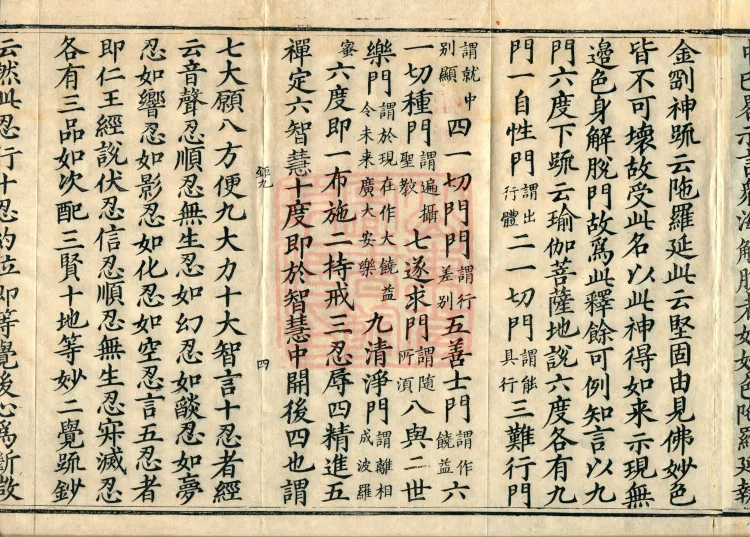 金剛神䟽云陁羅延此云堅固由見佛妙色
皆不可壞故受此名以此神得如来示現無
邉色身解脱門故爲此釋餘可例知言以九
門六度下䟽云瑜伽菩薩地說六度各有九
門一自性門謂出行體二一切門謂能具行三難行門
謂就中别顯四一切門門謂行差别五善士門謂作饒益六
一切種門謂遍攝聖教七遂求門謂随所湏八與二世
樂門謂於現在作大饒益令未来廣大安樂九清淨門謂離相成波羅
蜜六度即一布施二持戒三忍辱四精進五
禪定六智慧十度即於智慧中開後四也謂
鉅九 四
七大願八方便九大力十大智言十忍者經
云音聲忍順忍無生忍如幻忍如燄忍如夢
忍如響忍如影忍如化忍如空忍言五忍者
即仁王經說伏忍信忍順忍無生忍寂滅忍
各有三品如次配三賢十地等妙二覺䟽鈔
云然此忍行十忍約位即等覺後心爲斷故